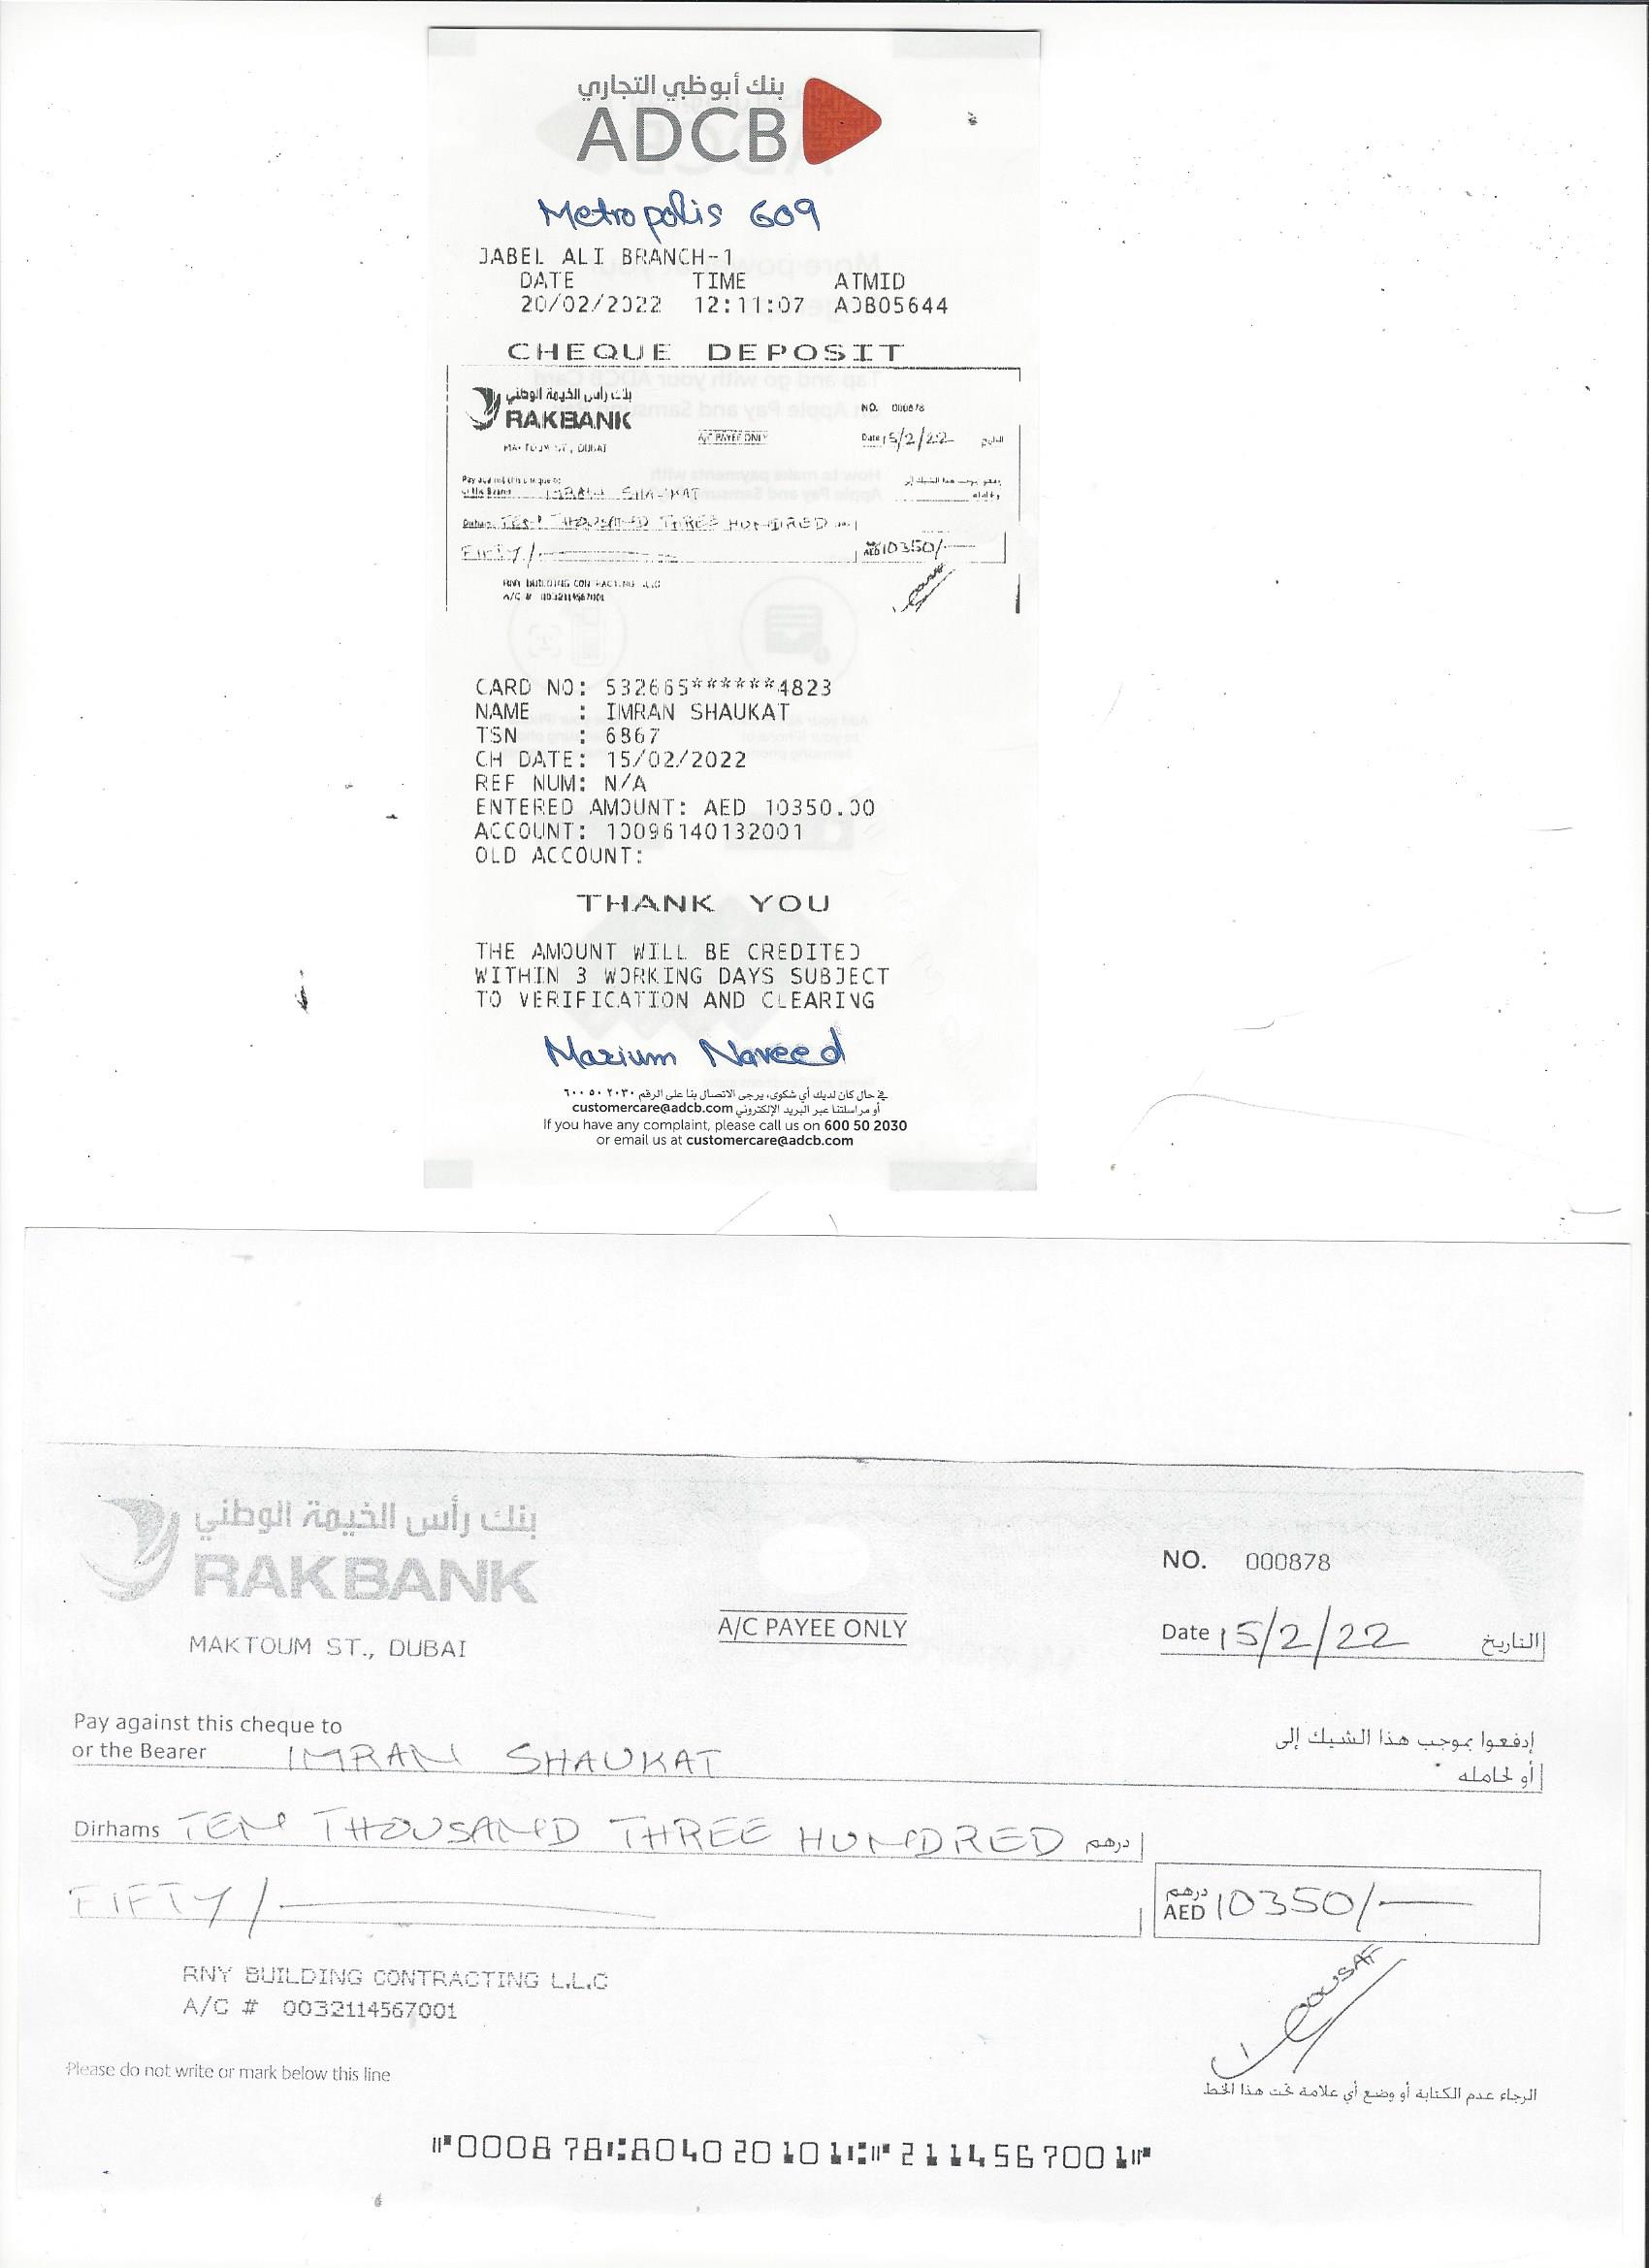 بنك أبوظبي التجاري
ADCB
Metropolis 609
JABEL ALI BRANCH-1
DATE TIME ATMID
20/02/2022 12:11:07 ADB05644
CHEQUE DEPOSIT
بنك رأس الخيمة الوطني
RAKBANK
NO. 000878
A/C PAYEE ONLY
Date 15/2/22 التاريخ
MAKTOUM ST., DUBAI
Pay against this cheque to
or the Bearer IMRAN SHAUKAT
إدفعوا بموجب هذا الشيك إلى
أو لحامله
Dirhams TEN THOUSAND THREE HUNDRED درهم
FIFTY/ درهم AED 10350/-
RNY BUILDING CONTRACTING L.L.C
A/C # 0032114567001
CARD NO: 532665******4823
NAME : IMRAN SHAUKAT
TSN : 6867
CH DATE: 15/02/2022
REF NUM: N/A
ENTERED AMOUNT: AED 10350.00
ACCOUNT: 10096140132001
OLD ACCOUNT:
THANK YOU
THE AMOUNT WILL BE CREDITED
WITHIN 3 WORKING DAYS SUBJECT
TO VERIFICATION AND CLEARING
Marium Naveed
في حال كان لديك أي شكوى، يرجى الاتصال بنا على الرقم ٦٠٠ ٥٠ ٢٠٣٠
أو مراسلتنا عبر البريد الإلكتروني customercare@adcb.com
If you have any complaint, please call us on 600 50 2030
or email us at customercare@adcb.com
بنك رأس الخيمة الوطني
RAKBANK
MAKTOUM ST., DUBAI
A/C PAYEE ONLY
NO. 000878
Date 15/2/22 التاريخ
Pay against this cheque to إدفعوا بموجب هذا الشيك إلى
or the Bearer IMRAN SHAUKAT أو لحامله
Dirhams TEN THOUSAND THREE HUNDRED درهم
FIFTY/ درهم AED 10350/-
RNY BUILDING CONTRACTING L.L.C
A/C # 0032114567001
Please do not write or mark below this line
الرجاء عدم الكتابة أو وضع أي علامة تحت هذا الخط
⑈000878⑆804020101⑆⑈2114567001⑈